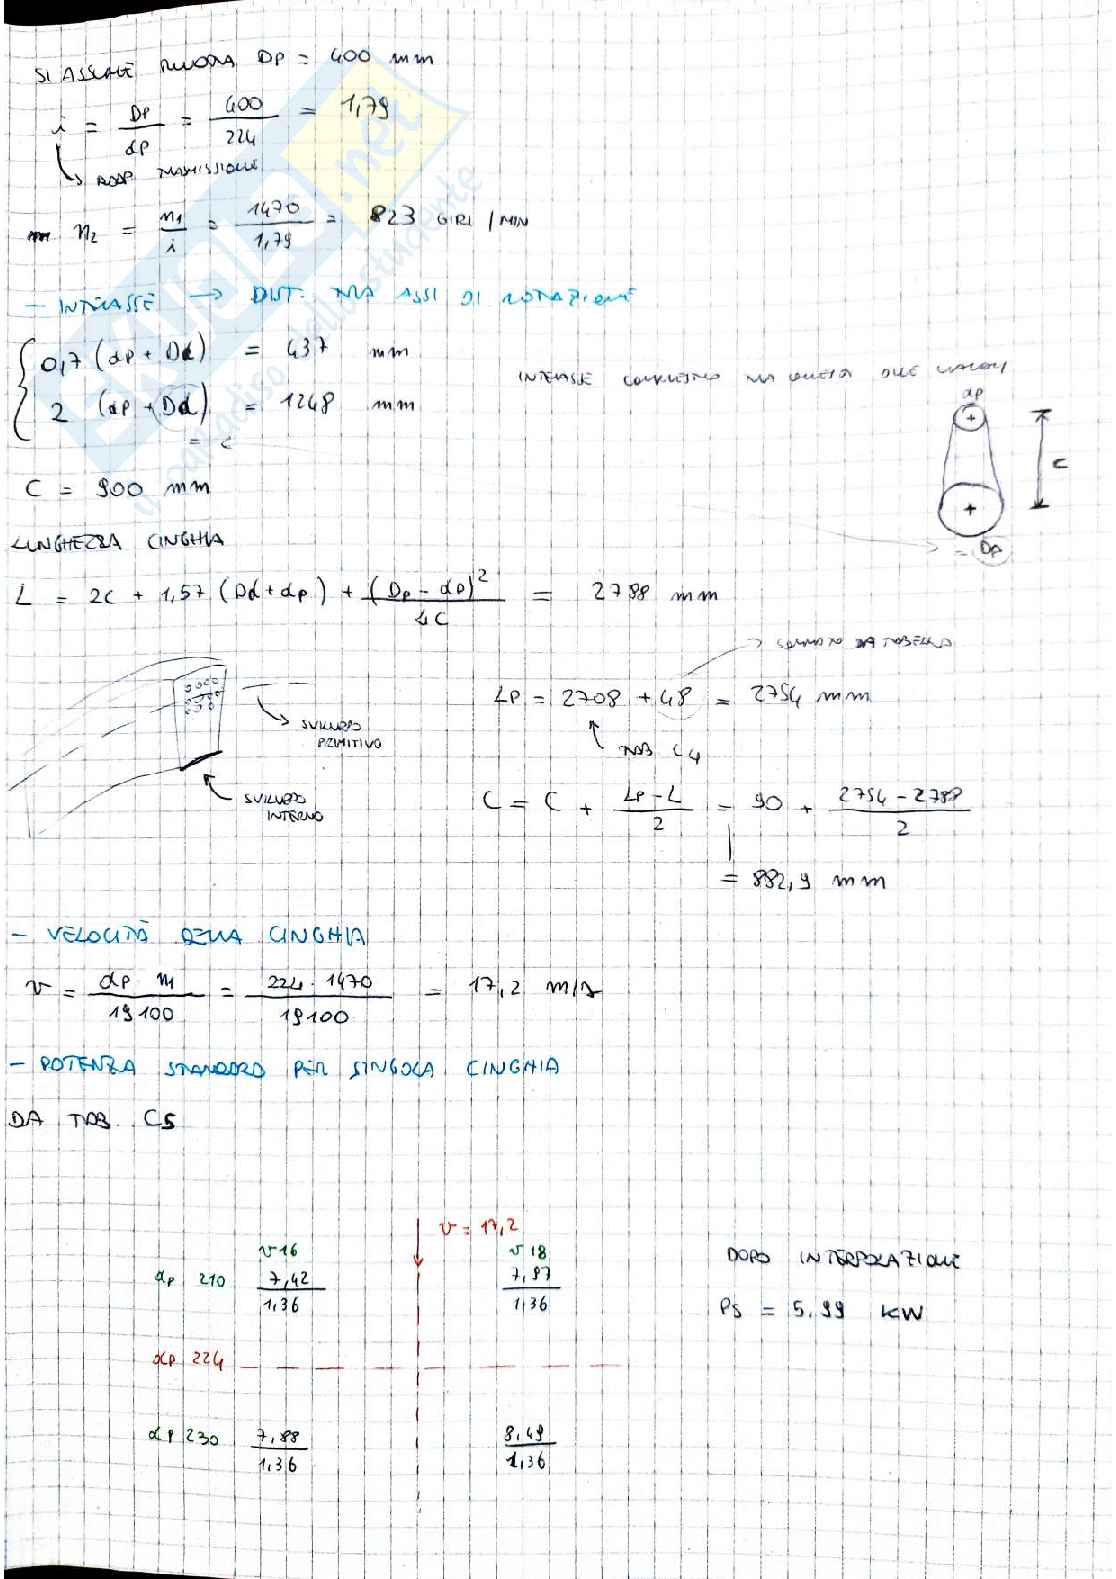 SI ASSUME ALLORA DP = 400 mm
i = DP / dp = 400 / 224 = 1,79
↳ RAPP TRASMISSIONE
n2 = n1 / i = 1470 / 1,79 = 823 GIRI / MIN
- INTERASSE → DIST. TRA ASSI DI ROTAZIONE
0,7 (dp + Dd) = 437 mm
2 (dp + Dd) = 1248 mm
= c
INTERASSE COMPRESO TRA QUESTI DUE VALORI
dp
C
= Dp
C = 900 mm
LUNGHEZZA CINGHIA
L = 2C + 1,57 (Dd + dp) + (Dp - dp)² / 4C = 2788 mm
→ SOMMATO DA TABELLA
Lp = 2708 + 48 = 2754 mm
TAB C4
→ SVILUPPO PRIMITIVO
SVILUPPO INTERNO
C = C + Lp - L / 2 = 90 + 2754 - 2788 / 2
= 882,9 mm
- VELOCITÀ DELLA CINGHIA
v = dp n1 / 19100 = 224 · 1470 / 19100 = 17,2 m/s
- POTENZA STANDARD PER SINGOLA CINGHIA
DA TAB. C5
v = 17,2
v 16 v 18
dp 210 7,42 / 1,36 7,97 / 1,36
dp 224
dp 230 7,88 / 1,36 8,49 / 1,36
DOPO INTERPOLAZIONE
Ps = 5,99 KW